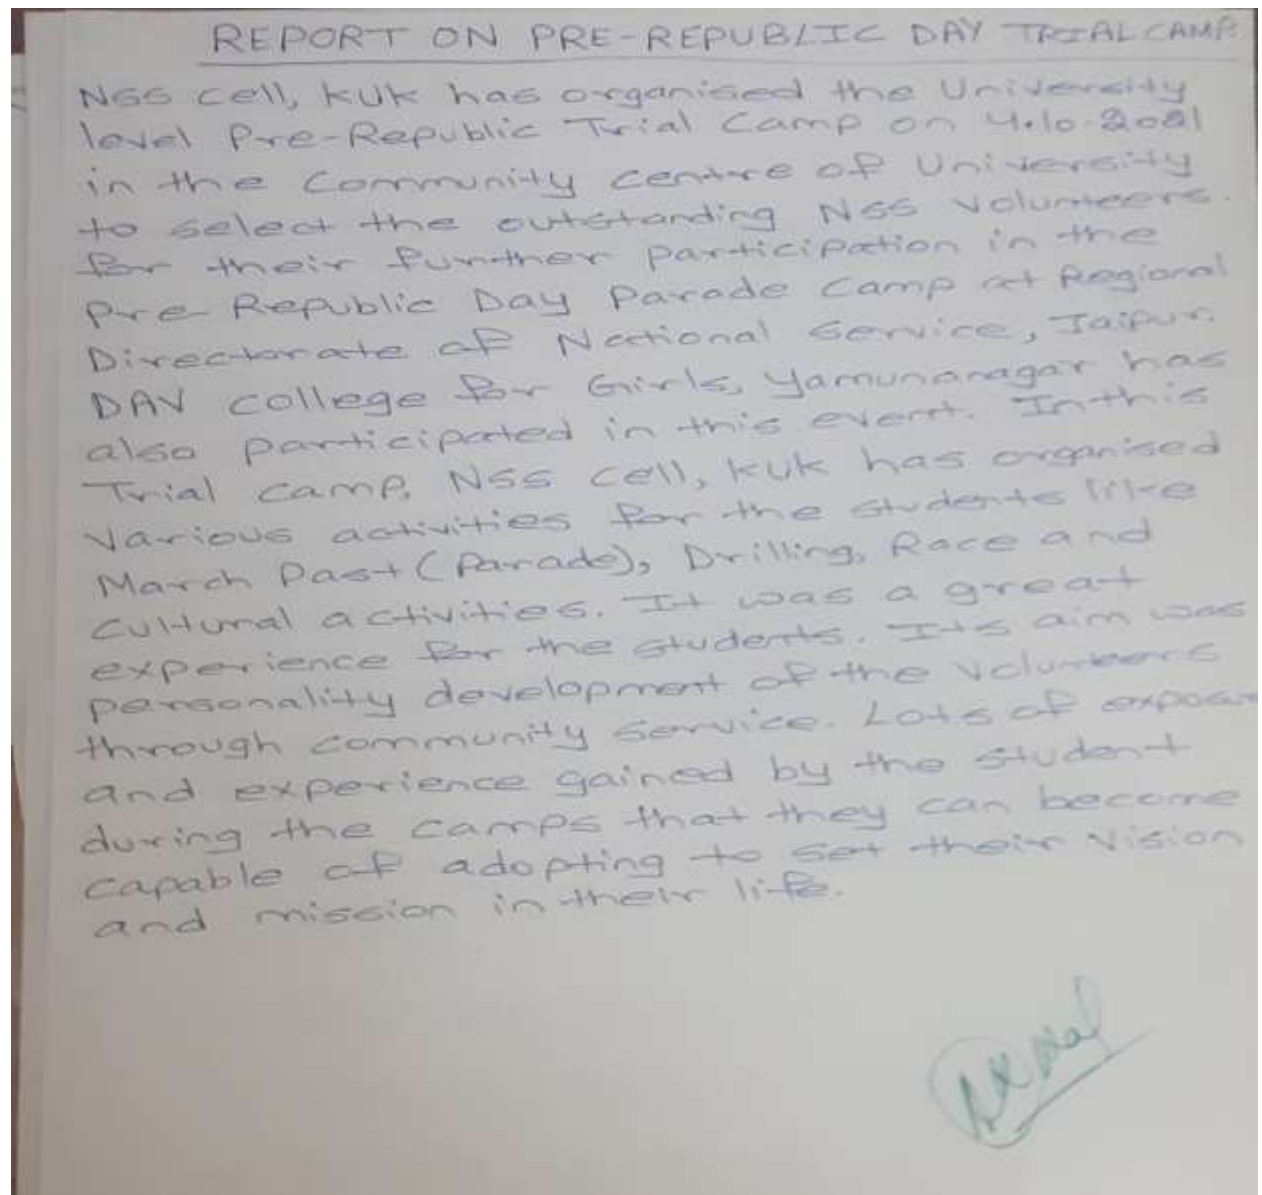 REPORT ON PRE-REPUBLIC DAY TRIAL CAMP
NSS cell, KUK has organised the University
level Pre-Republic Trial Camp on 4.10.2021
in the Community centre of University
to select the outstanding NSS Volunteers.
for their further participation in the
Pre-Republic Day Parade Camp at Regional
Directorate of National Service, Jaipur.
DAV college for Girls, Yamunanagar has
also participated in this event. In this
Trial camp, NSS cell, KUK has organised
various activities for the students like
March Past (Parade), Drilling, Race and
cultural activities. It was a great
experience for the students. Its aim was
personality development of the volunteers
through community service. Lots of exposur
and experience gained by the student
during the camps that they can become
capable of adopting to set their vision
and mission in their life.